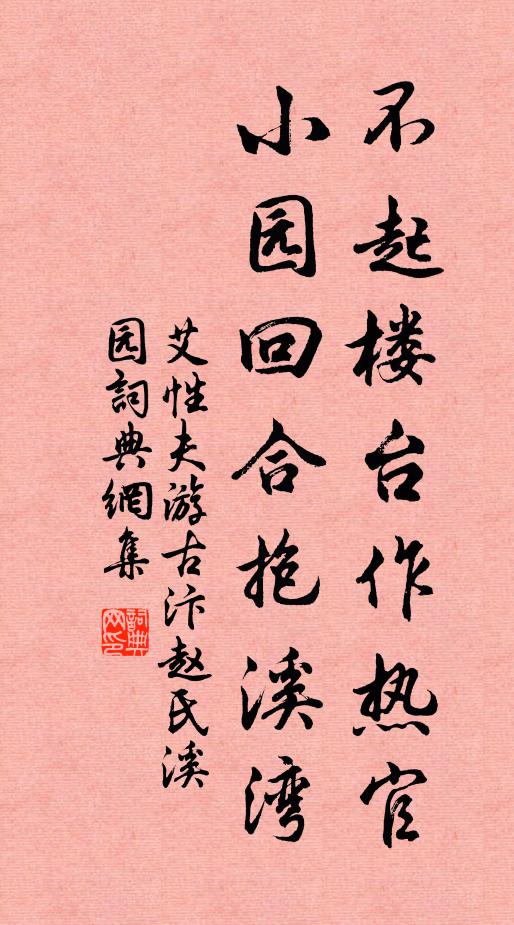 不起楼台作热官
小园回合抱溪湾
艾性夫游古汴赵氏溪
园詞典網集
詞典网印